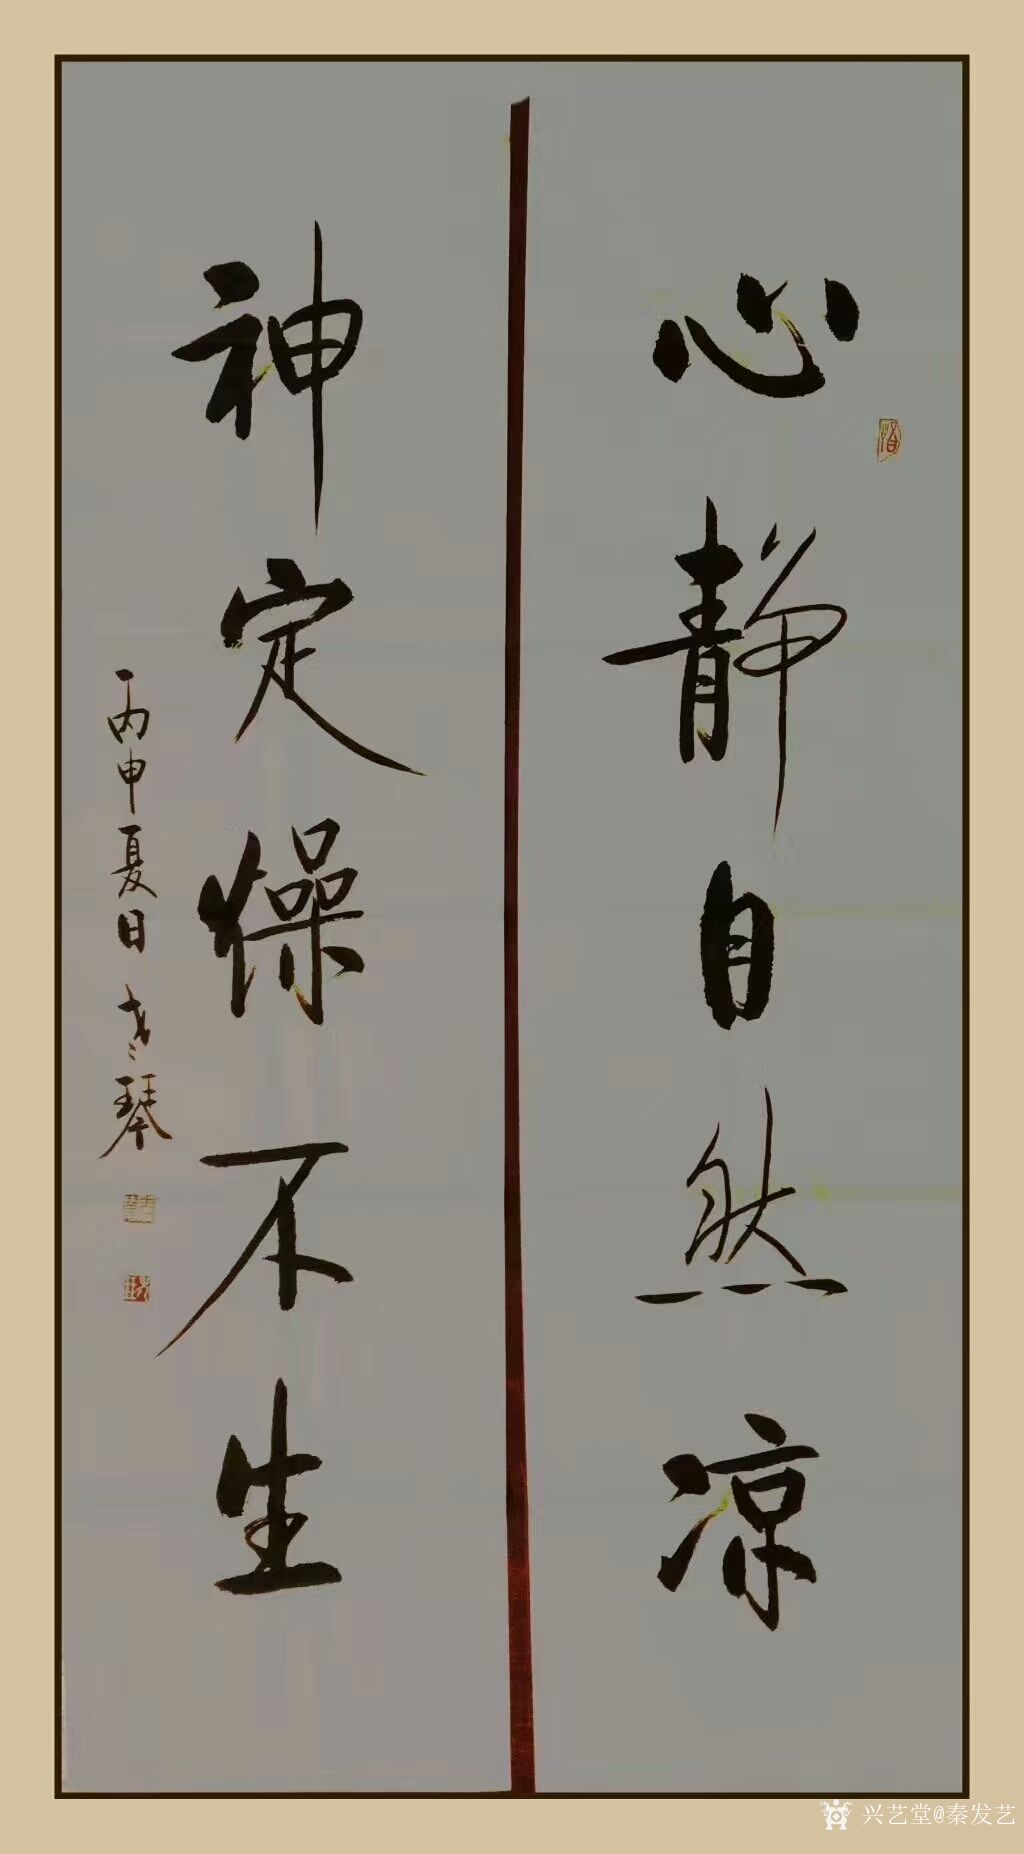 心静自然凉
神定燥不生
丙申夏日 老琴
兴艺堂@秦发艺